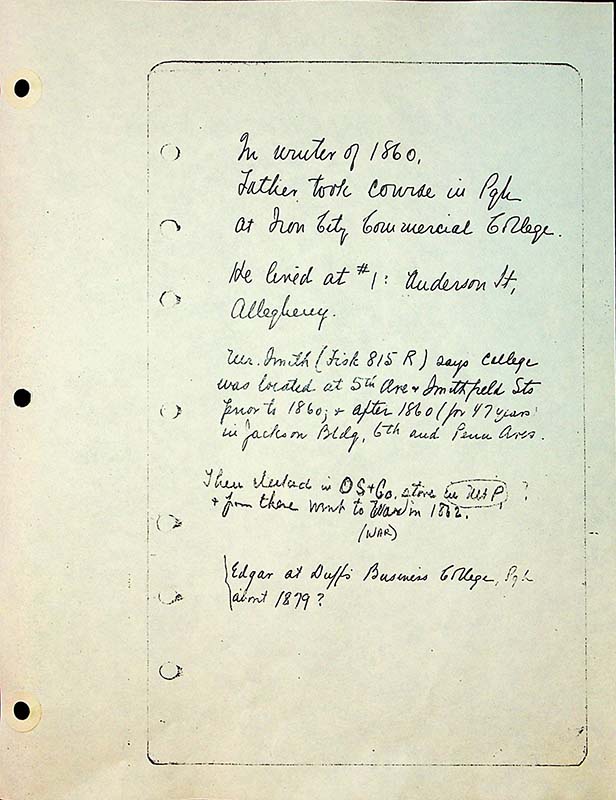 In winter of 1860,
Father took course in Pgh
at Iron City Commercial College.
He lived at #1: Anderson St,
Allegheny.
Mr. Smith (Fisk 815 R) says college
was located at 5th Ave + Smithfield Sts
prior to 1860; + after 1860 (for 47 years)
in Jackson Bldg, 6th and Penn Aves.
Then clerked in OS+Co. store in Mt P. ?
+ from there went to War in 1862.
(WAR)
Edgar at Duff's Business College, Pgh
about 1879?